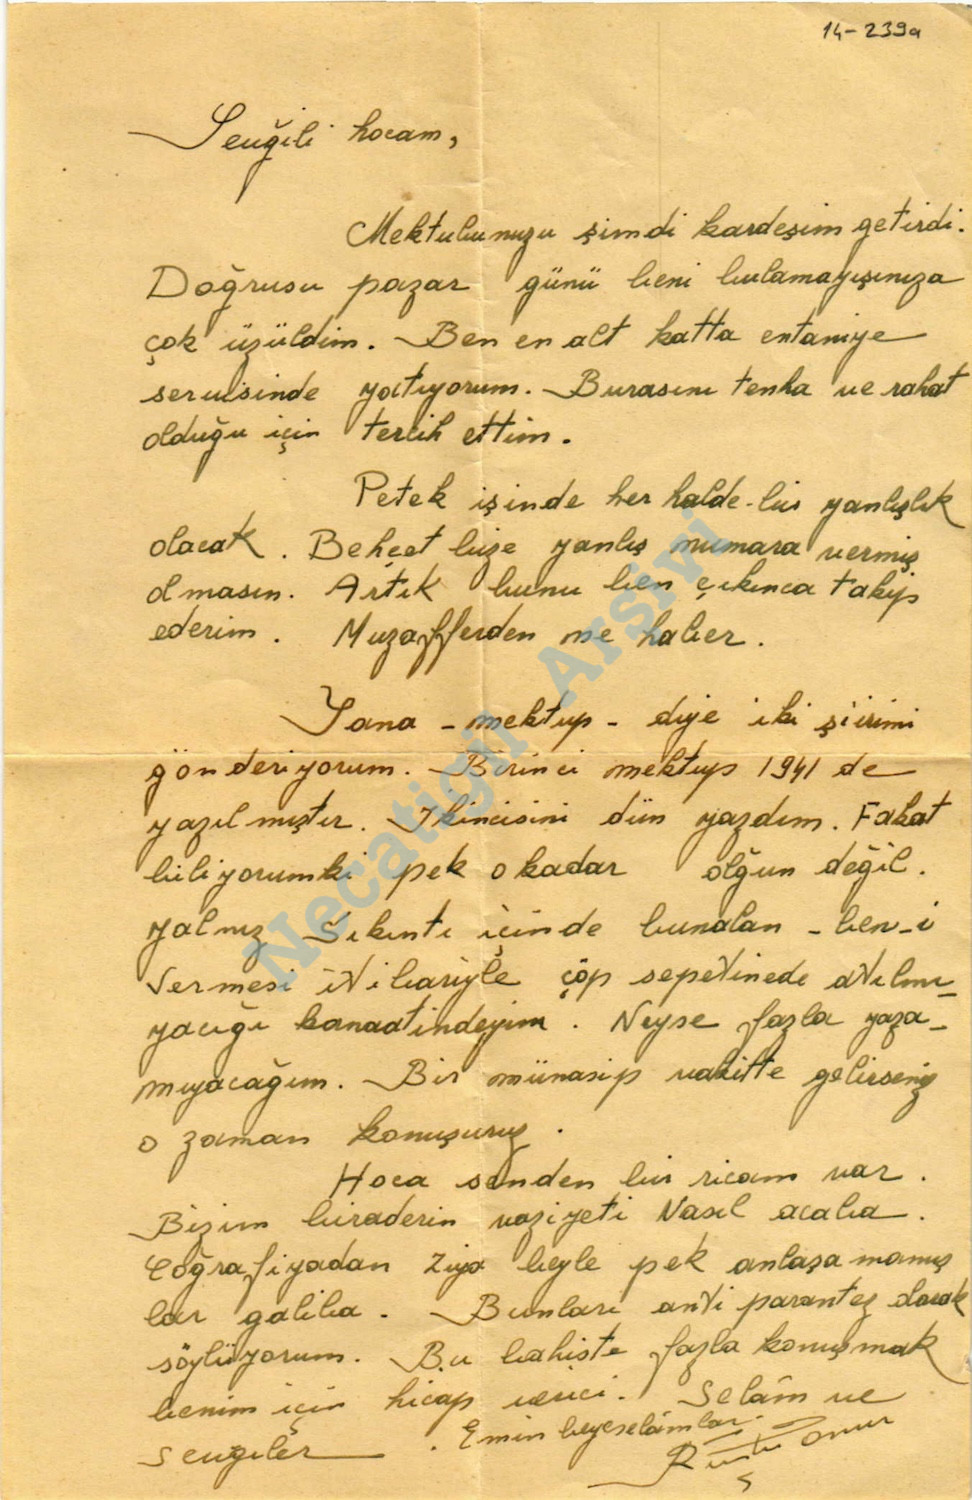 14-239a
Sevğili hocam,
Mektubunuzu şimdi kardeşim getirdi.
Doğrusu pazar günü beni bulamayışınıza
çok üzüldüm. Ben en alt katta entaniye
servisinde yatıyorum. Burasını tenha ve rahat
olduğu için tercih ettim.
Petek işinde her halde bir yanlışlık
olacak. Behçet bize yanlış numara vermiş
olmasın. Artık bunu ben çıkınca takip
ederim. Muzafferden ne haber.
Sana - mektup - diye iki şiirimi
gönderiyorum. Birinci mektup 1941 de
yazılmıştır. İkincisini dün yazdım. Fakat
biliyorumki pek o kadar olğun değil.
yalnız Sıkıntı içinde bunalan - ben - i
vermesi itibariyle çöp sepetinede atılmı-
yacığı kanaatindeyim. Neyse fazla yaza-
mıyacağım. Bir münasip vakitte gelirseniz
o zaman konuşuruz.
Hoca senden bir ricam var.
Bizim biraderin vaziyeti Nasıl acaba.
Coğrafiyadan Ziya beyle pek anlaşamamış
lar galiba. Bunları anti parantez olarak
söylüyorum. Bu bahiste fazla konuşmak
benim için hicap verici. Selâm ve
sevgiler. Emin beye selâmlar.
Rüştü Onur
Necatigil Arşivi